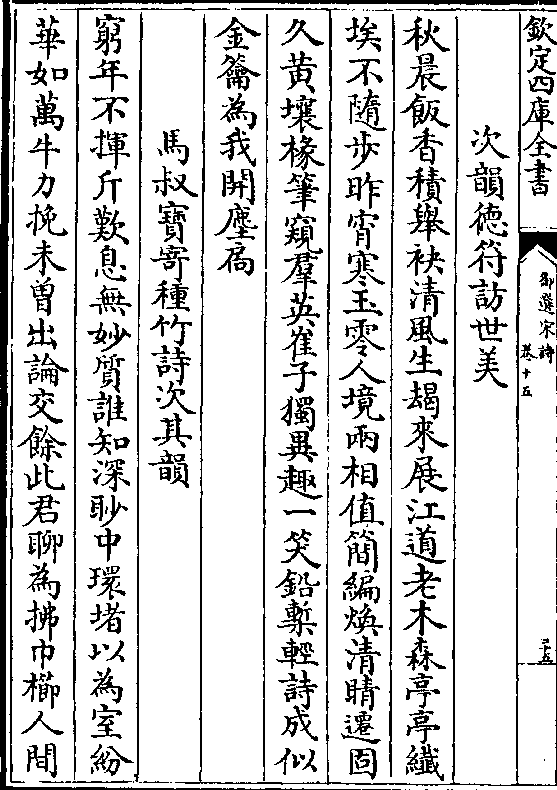 欽定四庫全書
御選宋詩
卷十五
二十五
次韻德符訪世美
秋晨飯香積舉袂清風生朅來展江道老木森亭亭纖
埃不隨步昨宵寒玉零人境兩相值簡編煥清晴遷固
久黄壤椽筆窺羣英崔子獨異趣一笑鉛槧輕詩成似
金籥為我開塵扃
馬叔寶寄種竹詩次其韻
窮年不揮斤歎息無妙質誰知深眇中環堵以為室紛
華如萬牛力挽未曽出論交餘此君聊為拂巾櫛人間